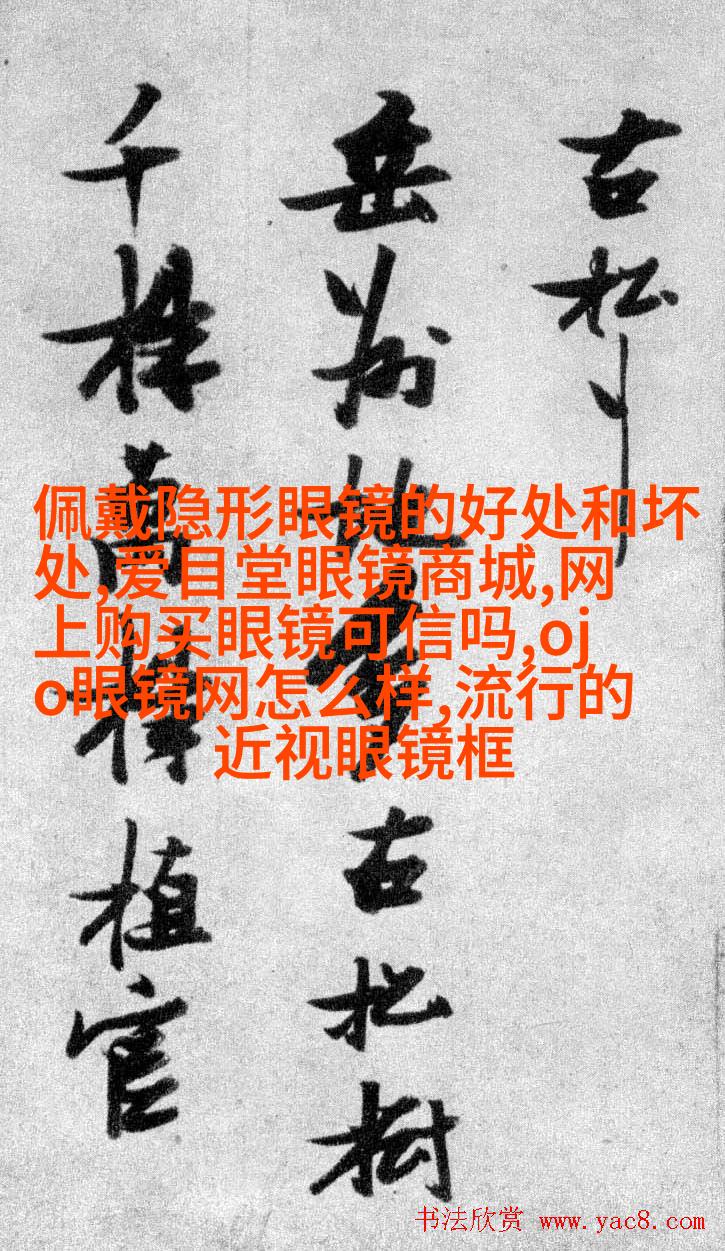 古松
岳州古松樹
千株萬株植官
佩戴隐形眼镜的好处和坏
处,爱目堂眼镜商城,网
上购买眼镜可信吗,oj
o眼镜网怎么样,流行的
近视眼镜框
书法欣赏 www.yac8.com